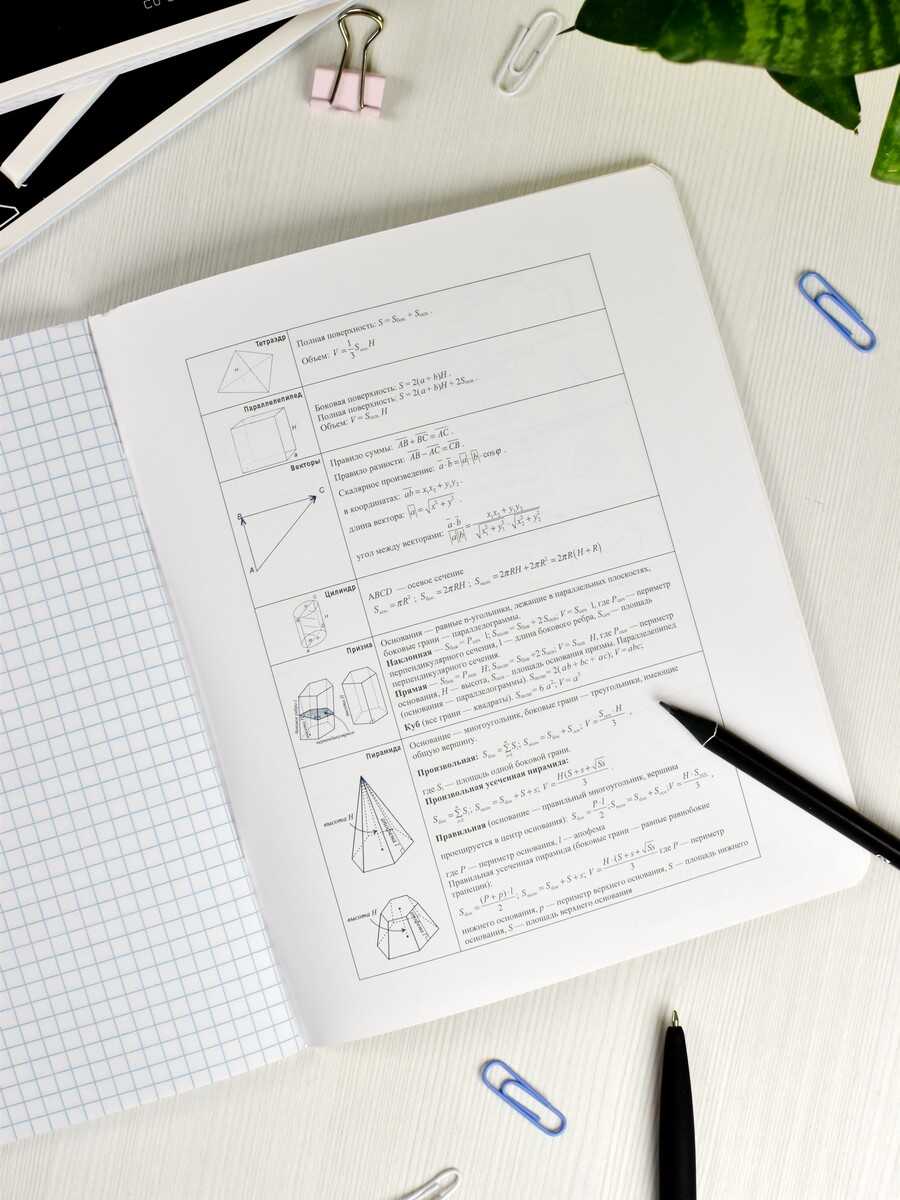 Тетраэдр
Полная поверхность: S = Sбок + Sосн .
Объем: V = 1/3 Sосн H
Параллелепипед
H
a
Боковая поверхность: S = 2(a + b)H .
Полная поверхность: S = 2(a + b)H + 2Sосн .
Объем: V = Sосн H
Векторы
B
C
A
Правило суммы: AB + BC = AC .
Правило разности: AB − AC = CB .
Скалярное произведение: a · b = |a| · |b| · cos φ .
в координатах: ab = x₁x₂ + y₁y₂ .
длина вектора: |a| = √(x² + y²) .
угол между векторами: a · b / |a||b| = (x₁x₂ + y₁y₂) / (√(x₁² + y₁²) · √(x₂² + y₂²))
Цилиндр
ABCD — осевое сечение
Sосн = πR² ; Sбок = 2πRH ; Sполн = 2πRH + 2πR² = 2πR(H + R)
Призма
Основания — равные n-угольники, лежащие в параллельных плоскостях,
боковые грани — параллелограммы.
Наклонная — Sбок = Pсеч l; Sполн = Sбок + 2 Sосн; V = Sсеч l, где Pсеч — периметр
перпендикулярного сечения, l — длина бокового ребра, Sсеч — площадь
перпендикулярного сечения.
Прямая — Sбок = Pосн H; Sполн = Sбок +2 Sосн; V = Sосн H, где Pосн — периметр
основания, H — высота, Sосн - площадь основания призмы. Параллелепипед
(основания — параллелограммы). Sполн = 2(ab + bc + ac); V = abc;
Куб (все грани — квадраты). Sполн = 6 a²; V = a³
Пирамида
высота H
Основание — многоугольник, боковые грани — треугольники, имеющие
общую вершину.
Произвольная: Sбок = ΣSᵢ; Sполн = Sбок + Sосн; V = Sосн · H / 3 ,
где Sᵢ — площадь одной боковой грани.
Произвольная усеченная пирамида:
Sбок = ΣSᵢ; Sполн = Sбок + S + s; V = H(S + s + √Ss / 3 .
Правильная (основание — правильный многоугольник, вершина
проецируется в центр основания): Sбок = P · l / 2 ; Sполн = Sбок + Sосн; V = H · Sосн / 3 ,
где P — периметр основания, l — апофема
Правильная усеченная пирамида (боковые грани — равные равнобокие
трапеции):
Sбок = (P + p) · l / 2 ; Sполн = Sбок + S + s; V = H · (S + s + √Ss / 3 где P — периметр
высота H
нижнего основания, p — периметр верхнего основания, S — площадь нижнего
основания, S — площадь верхнего основания